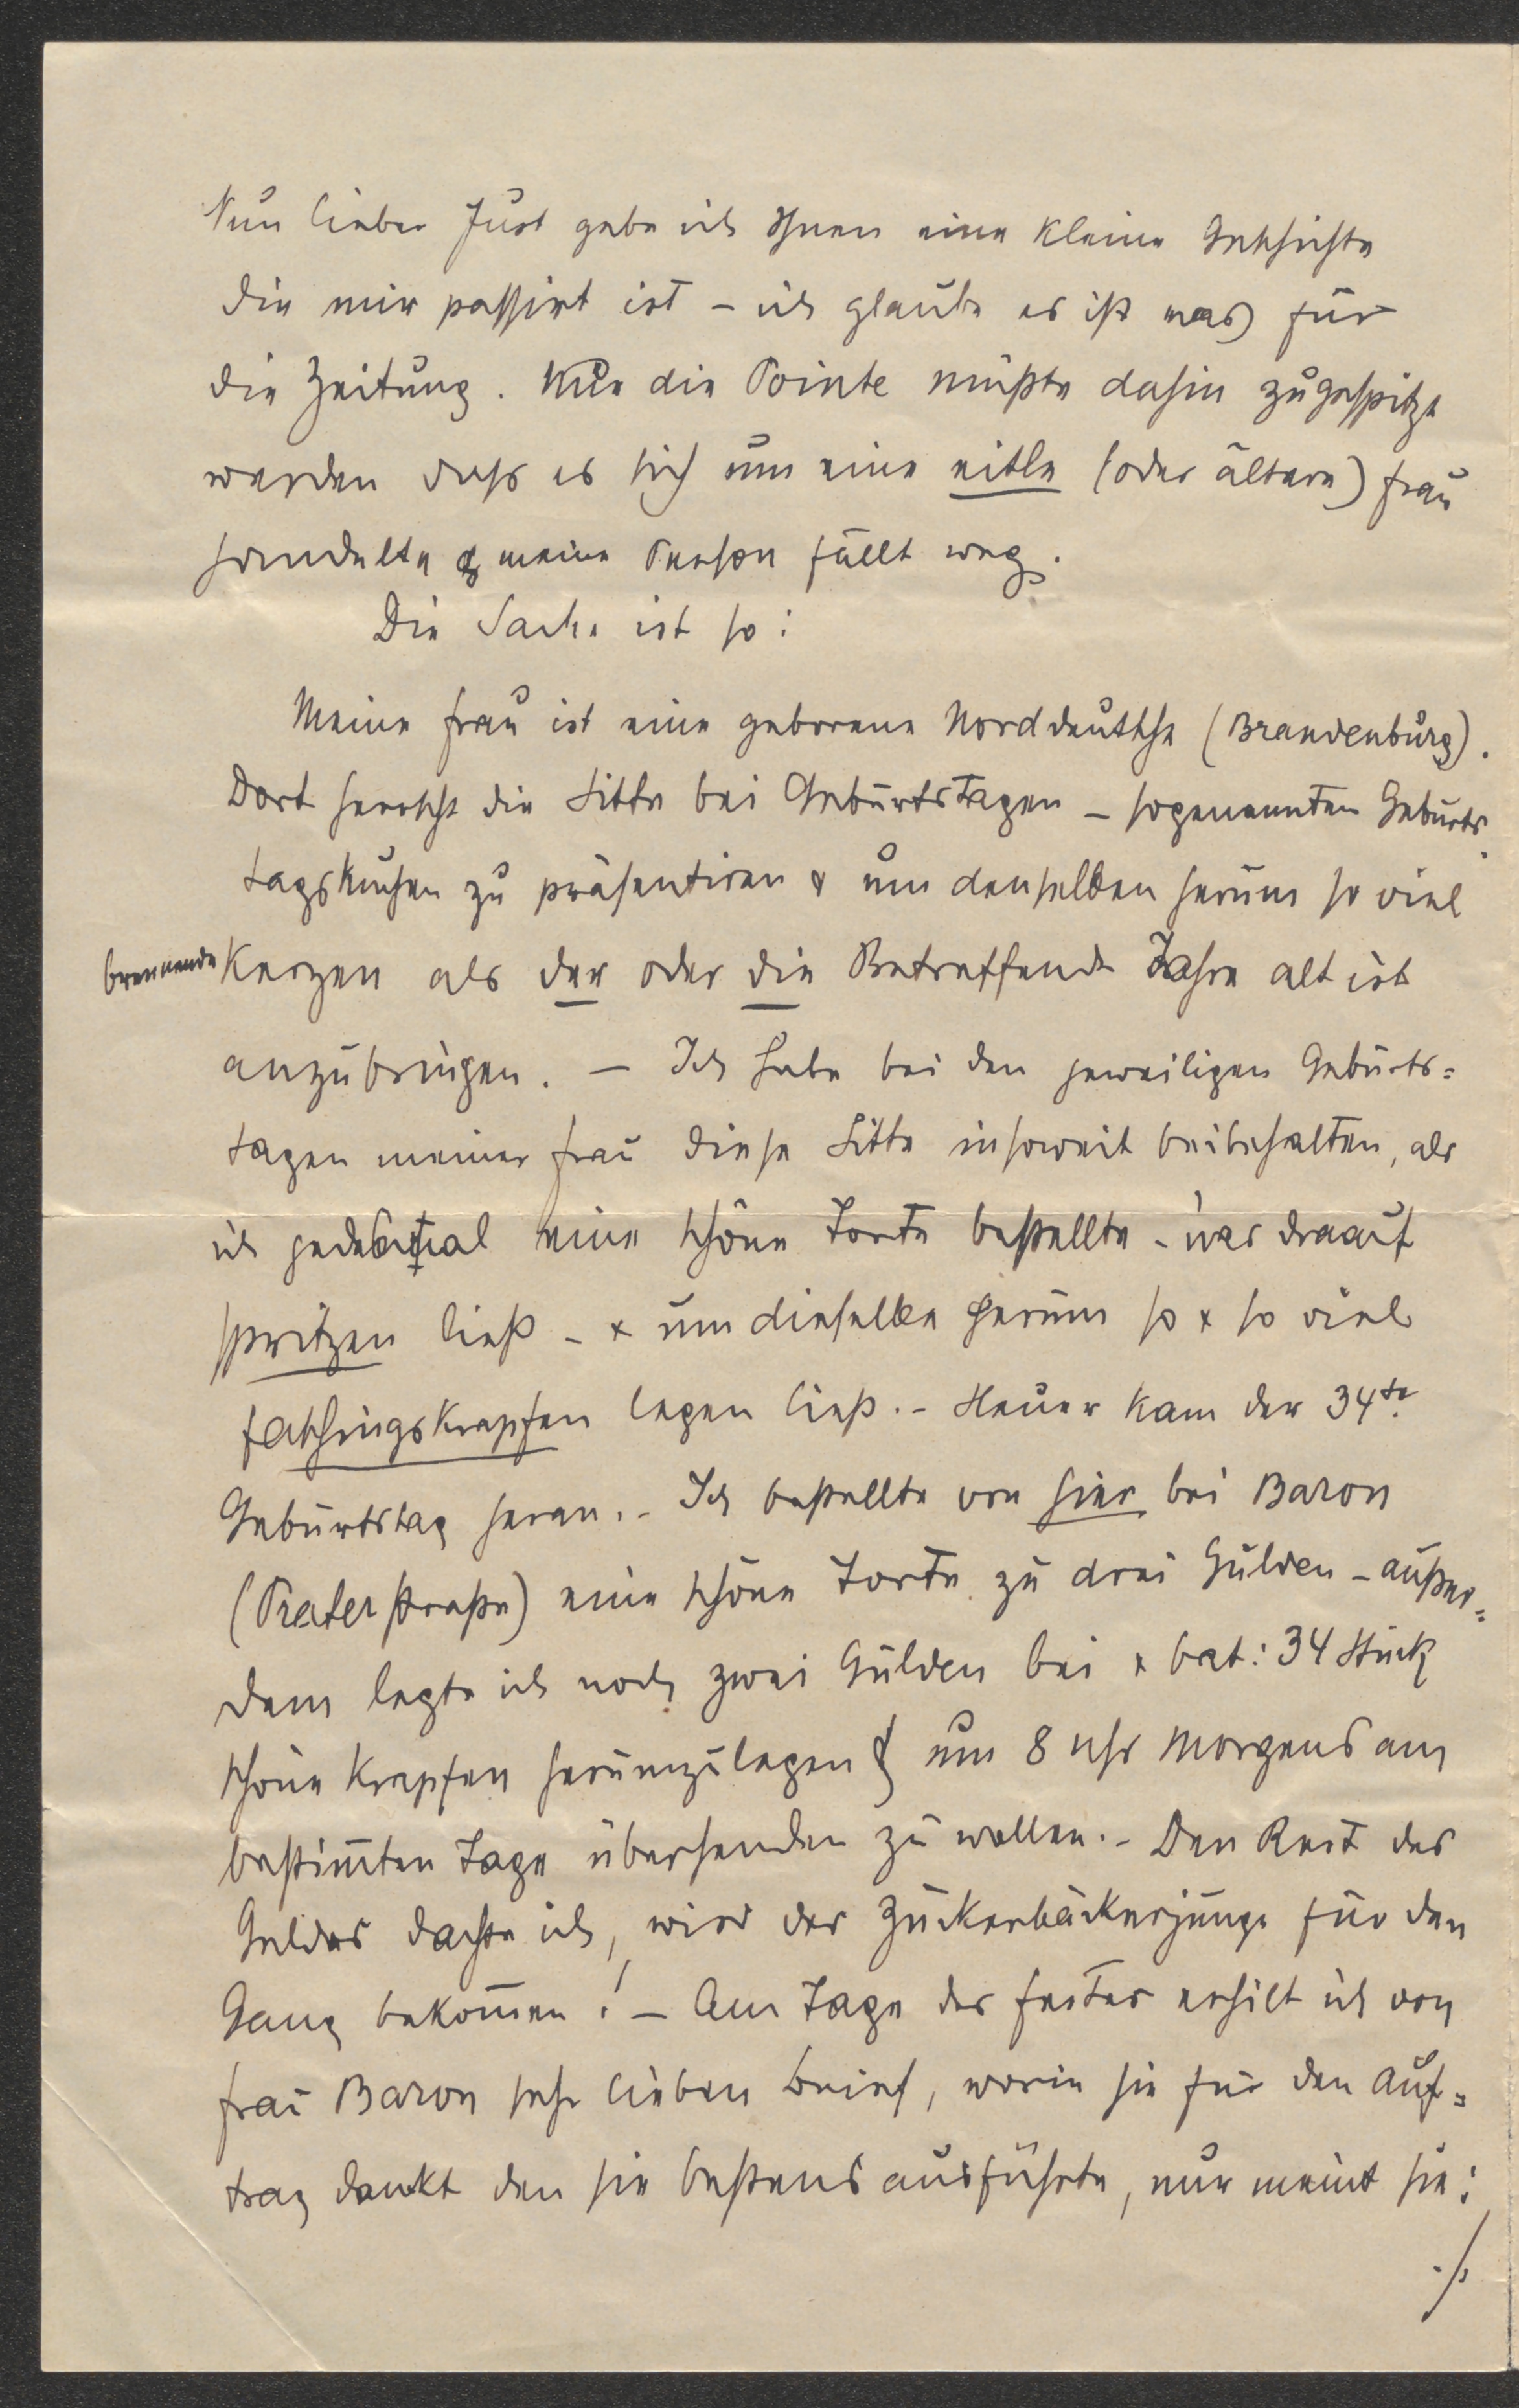 Nun lieber Just gebe ich Ihnen eine kleine Geschichte
die mir passirt ist – ich glaube es ist was für
die Zeitung. Nur die Pointe müßte dahin zugespitzt
werden dass es sich um eine eitle (oder ältere) Frau
handelte & meine Person fällt weg.
Die Sache ist so:
Meine Frau ist eine geborene Norddeutsche (Brandenburg).
Dort herrscht die Sitte bei Geburtstagen – sogenannten Geburts
tagskuchen zu präsentiren & um denselben herum so viel
brennende Kerzen als der oder die Betreffende Jahre alt ist
anzubringen. – Ich habe bei den jeweiligen Geburts=
tagen meiner Frau diese Sitte insoweit beibehalten, als
ich jedesmal eine schöne Torte bestellte – was drauf
spritzen ließ – & um dieselbe herum so & so viel
Faschingskrapfen legen ließ. – Heuer kam der 34te
Geburtstag heran. – Ich bestellte von hier bei Baron
(Praterstraße) eine schöne Torte zu drei Gulden – außer=
dem legte ich noch zwei Gulden bei & bat: 34 Stück
schöne Krapfen herumzulegen & um 8 Uhr Morgens am
bestim̅ten Tage übersenden zu wollen. – Den Rest des
Geldes dachte ich, wird der Zuckerbäckerjunge für den
Gang bekom̅en! – Am Tage des Festes erhilt ich von
Frau Baron sehr lieben Brief, worin sie für den Auf=
trag dankt den sie bestens ausführte, nur meint sie:
./.